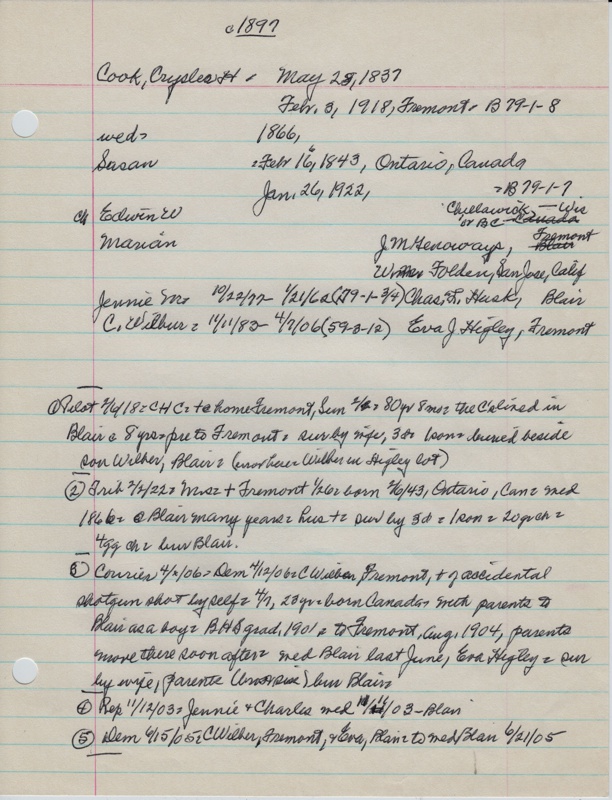 c 1897
Cook, Crysler H = May 25, 1837
Feb. 3, 1918, Fremont = B 79-1-8
wed = 1866,
Susan = Feb 16, 1843, Ontario, Canada
Jan. 26, 1922, = B 79-1-7
ch Edwin W Chillawick - Wis
or BC Canada
Marian J M Henoways, Fremont Blair
W Folden, San Jose, Calif
Jennie M = 10/22/77 - 1/21/62 (79-1-3/4) Chas. T. Husk, Blair
C. Wilbur = 11/11/83 - 4/7/06 (59-3-12) Eva J Higley, Fremont
① Pilot 2/6/18 = C H C = + @ home Fremont, Sun = 80 yr 8 mo = the C's lived in
Blair @ 8 yrs = pre to Fremont = sur by wife, 3 d 1 son = buried beside
son Wilber, Blair = (error here Wilber in Higley lot)
② Trib 2/2/22 = Mrs = + Fremont 1/26 = born 2/6/43, Ontario, Can = wed
1866 = @ Blair many years = hus + = sur by 3 d = 1 son = 20 gr ch =
4 gg ch = bur Blair.
③ Courier 4/2/06 = Dem 4/12/06 = C Wilber, Fremont, + of accidental
shotgun shot by self = 4/7, 23 yr = born Canada = with parents to
Blair as a boy = B.H.S grad, 1901 = to Fremont, Aug. 1904, parents
move there soon after = wed Blair last June, Eva Higley = sur
by wife, parents bur Blair =
④ Rep 11/12/03 = Jennie & Charles wed 11/11/03 - Blair
⑤ Dem 6/15/05 = C Wilber, Fremont, & Eva, Blair = to wed Blair 6/21/05